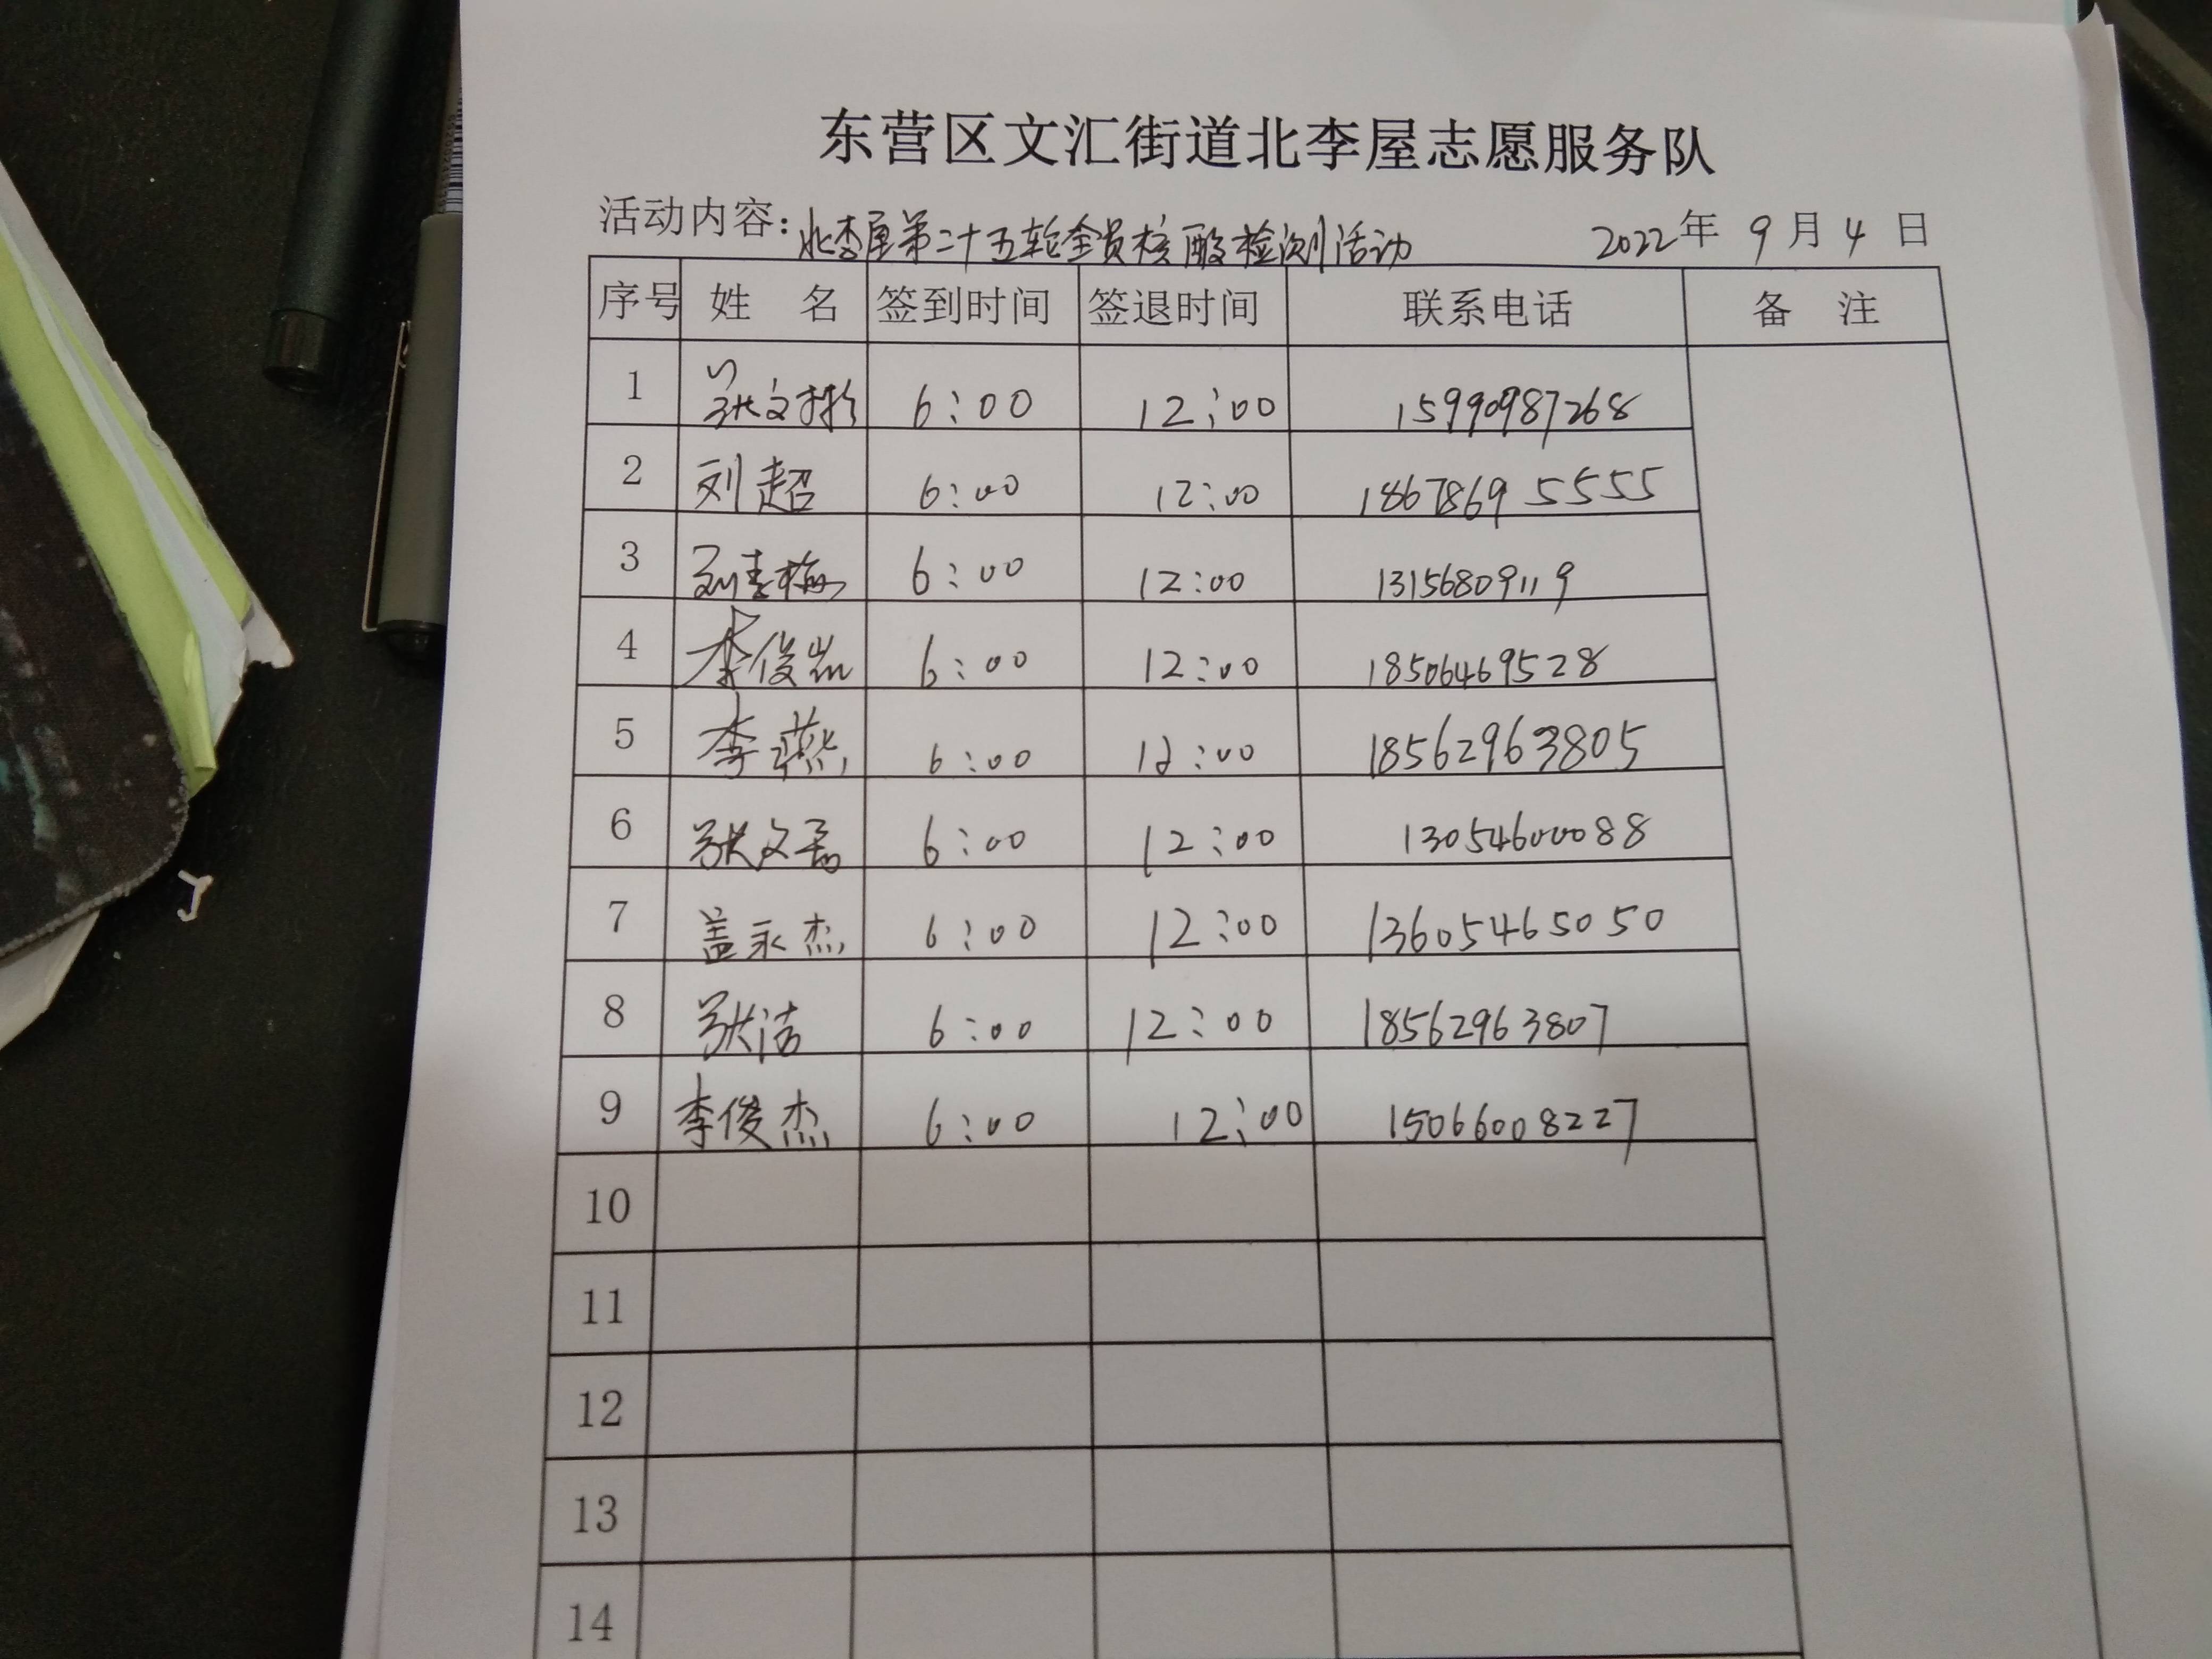 东营区文汇街道北李屋志愿服务队
活动内容：北李屋第二十五轮全员核酸检测活动 2022年 9月4日
序号 姓 名 签到时间 签退时间 联系电话 备 注
1 6:00 12:00 15990987268
2 刘超 6:00 12:00 18678695555
3 刘青梅 6:00 12:00 13156809119
4 李俊凯 6:00 12:00 18506469528
5 李燕 6:00 12:00 18562963805
6 张文 6:00 12:00 13054600088
7 盖永杰 6:00 12:00 13605465050
8 张洁 6:00 12:00 18562963807
9 李俊杰 6:00 12:00 15066008227
10
11
12
13
14